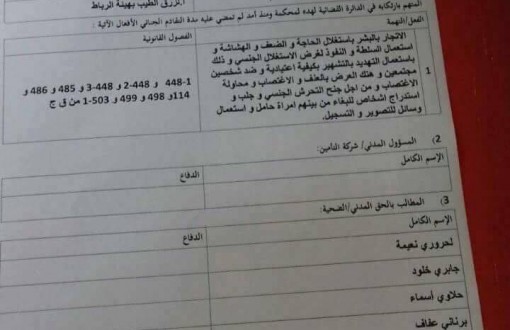 المتهم بارتكابه في الدائرة القضائية لهذه المحكمة ومنذ أمد لم تمضي عليه مدة التقادم الجنائي الأفعال الآتية :
ا.لزرق الطيب بهيئة الرباط
الفعل/التهمة
الفصول القانونية
1
الاتجار بالبشر باستغلال الحاجة و الضعف و الهشاشة و
استعمال السلطة و النفوذ لغرض الاستغلال الجنسي و ذلك
باستعمال التهديد بالتشهير بكيفية اعتيادية و ضد شخصين
مجتمعين و هتك العرض بالعنف و الاغتصاب و محاولة
الاغتصاب و من اجل جنح التحرش الجنسي و جلب و
استدراج اشخاص للبغاء من بينهم امراة حامل و استعمال
وسائل للتصوير و التسجيل.
448-1 و 448-2 و 448-3 و 485 و 486 و
114و 498 و 499 و 503-1 من ق ج
2) المسؤول المدني/ شركة التأمين:
الإسم الكامل
الدفاع
3) المطالب بالحق المدني/الضحية:
الإسم الكامل
الدفاع
لحروري نعيمة
جابري خلود
حلاوي أسماء
برناني عفاف